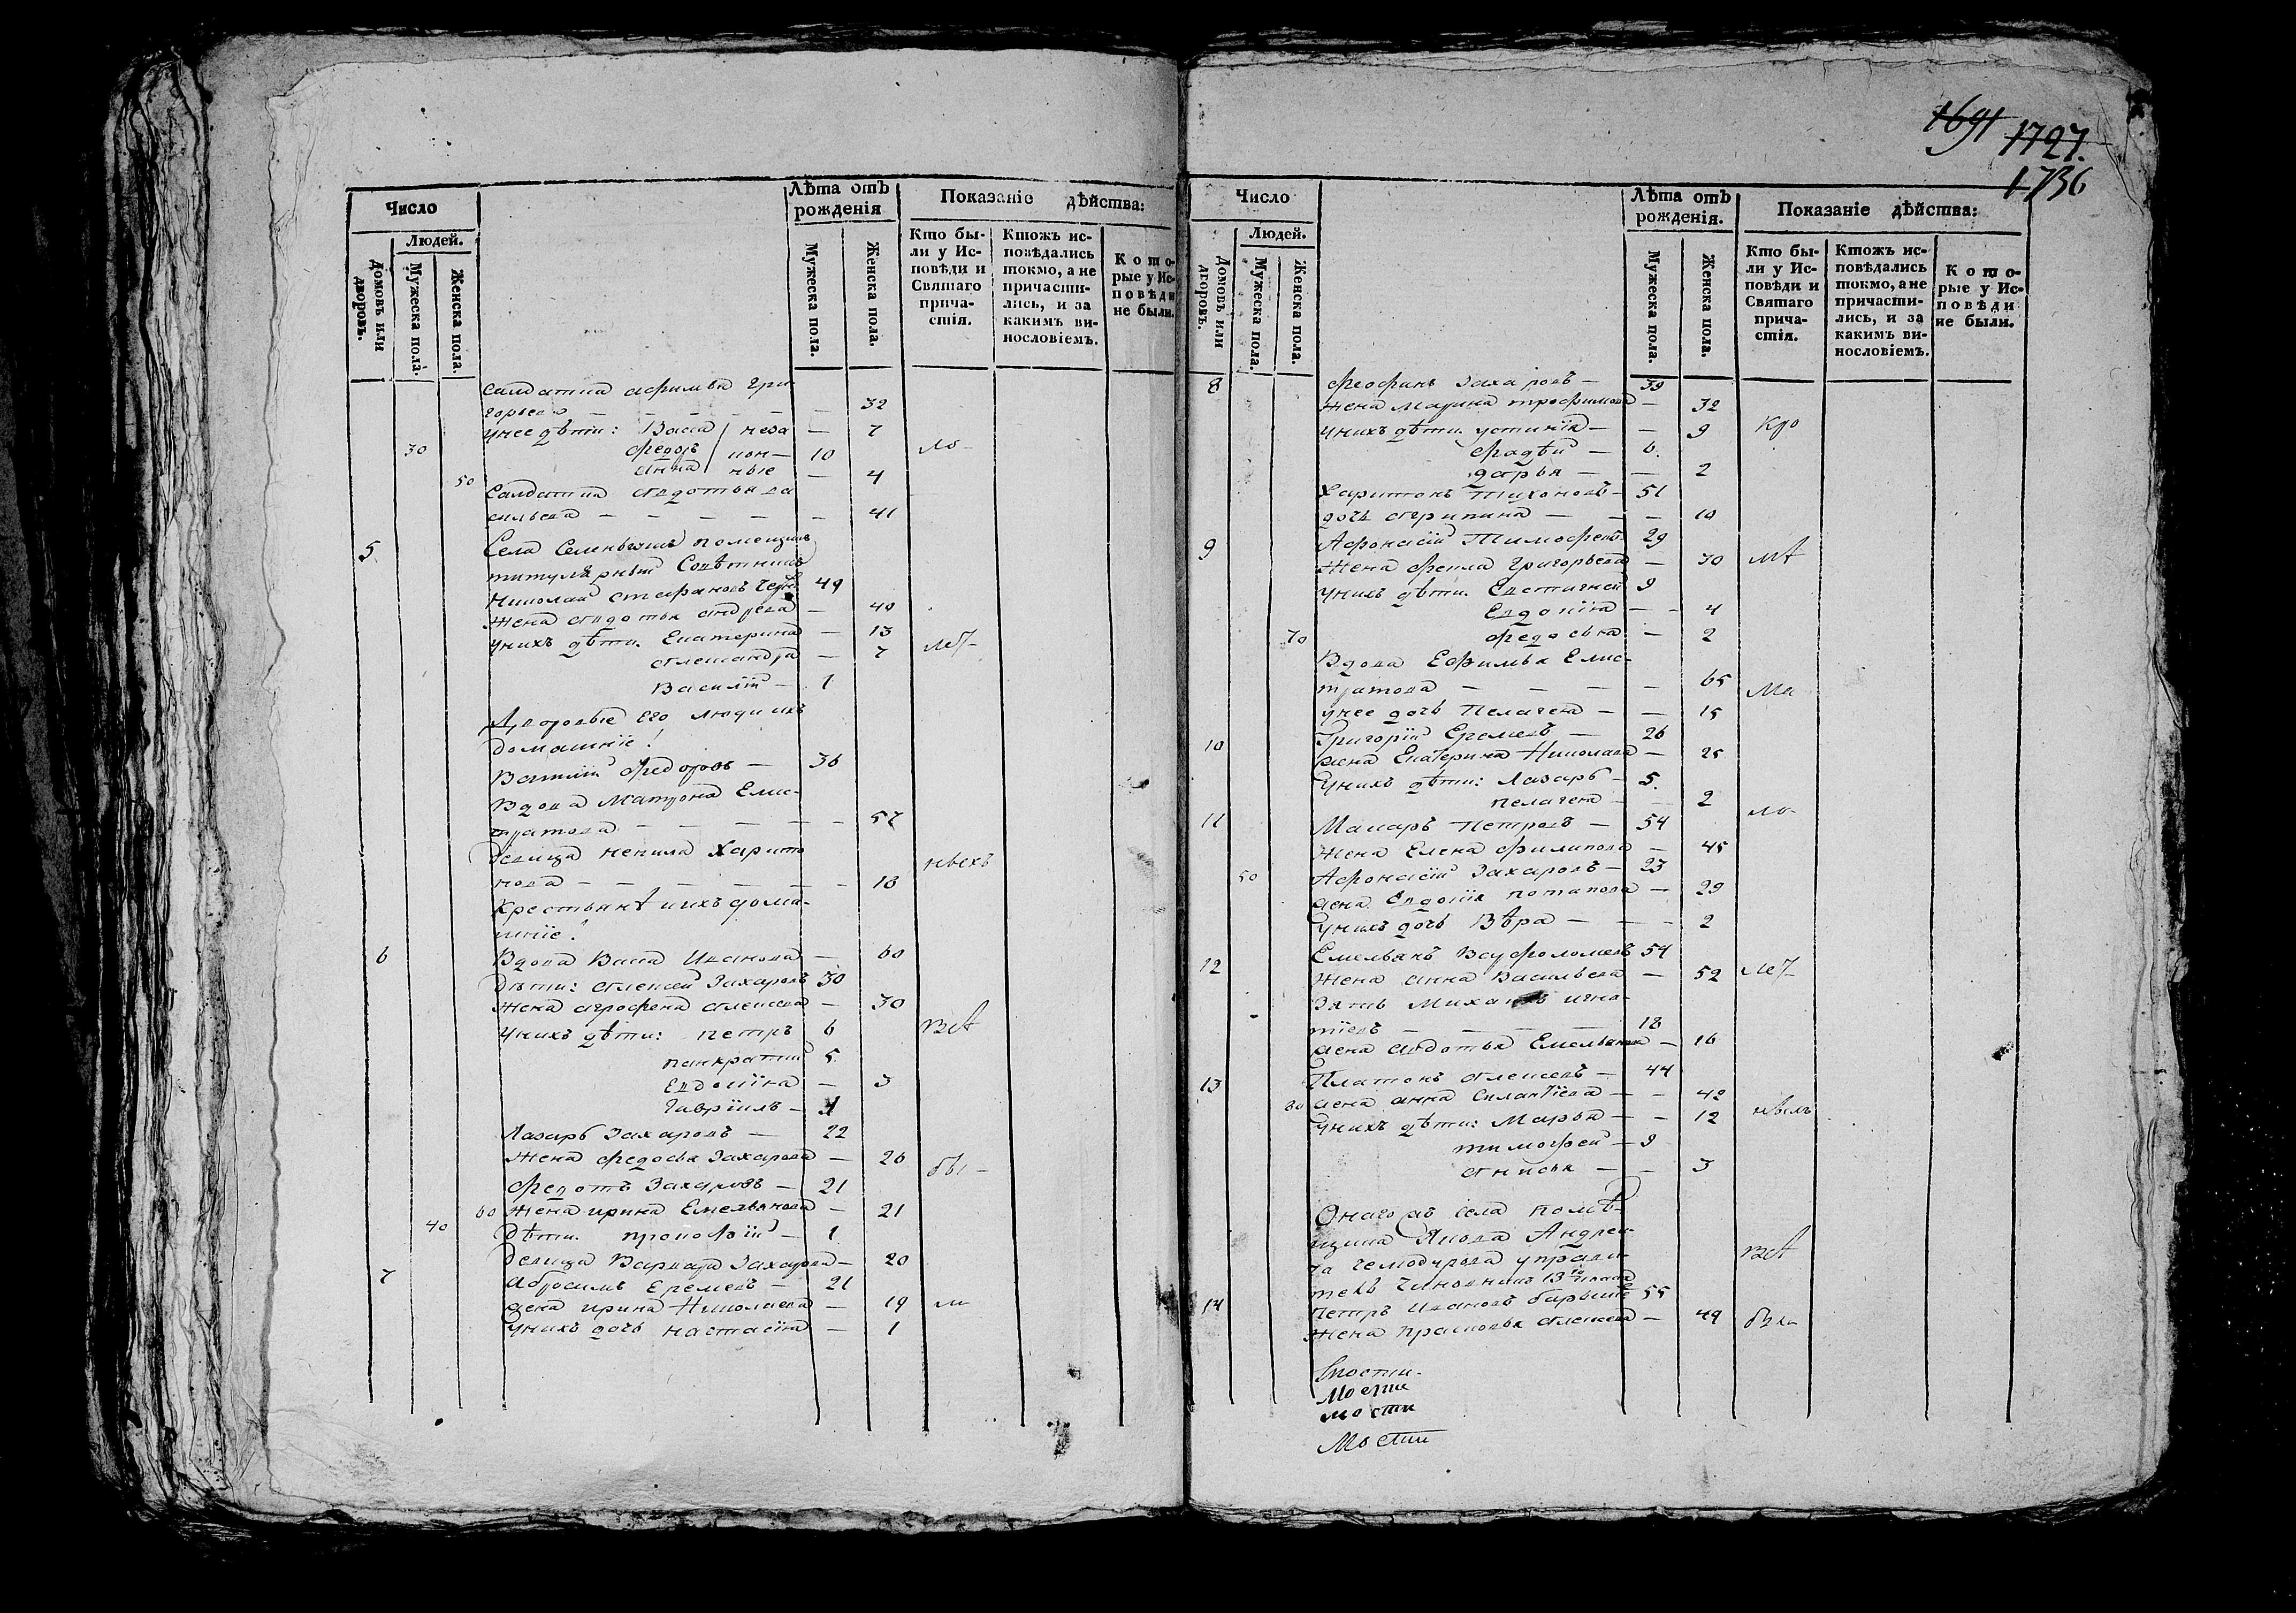 1691 1727.
1736
Число
Лѣта отъ рожденія
Показаніе дѣйства:
Людей.
Домовъ или дворовъ.
Мужеска пола.
Женска пола.
Мужеска пола.
Женска пола.
Кто бы-
ли у Ис-
повѣди и
Святаго
прича-
стія.
Ктожъ ис-
повѣдались
токмо, а не
причасти-
лись, и за
какимъ ви-
нословіемъ.
Кото-
рые у Ис-
повѣди
не были.
салдатка афимья гри
горьева — 32
унее дѣти: Васса неза — 7
30 федоръ кон— 10 ло-
50 анна ные — 4
Салдатка авдотья ва
сильева — 41
5 Села помещикъ
титулярный Совѣтникъ
Николай Стефановъ 49
жена авдотья андреева — 40
унихъ дѣти. Екатерина — 13
александра — 7
Василій — 1
Дворовые его люди ихъ
домашніе:
Василій федоровъ — 36
Вдова Матрона Ели-
стратова — 57
Девица ненила Харито
нова — 18
Крестьянѣ иихъ дома-
шніе:
6 Вдова Васса Иванова — 60
Дѣти: алексей Захаровъ 30
Жена агрофена алексева — 30
Унихъ дѣти: петръ 6
панкратий 5
Евдокіа — 3
Гавріилъ — 1
Лазарь Захаровъ — 22
Жена федосья Захарова — 20 бы-
федотъ Захаровъ — 21
60 Жена ирина Емельянова — 21
40 Дѣти. прокофій — 1
Девица Варвара Захарова — 20
7 Абросимъ Еремевъ — 21
жена ирина Николаева — 19 ли
Унихъ дочь настасіа — 1
Число
Лѣта отъ рожденія.
Показаніе дѣйства:
Людей.
Домовъ или дворовъ.
Мужеска пола.
Женска пола.
Мужеска пола.
Женска пола.
Кто бы-
ли у Ис-
повѣди и
Святаго
прича-
стія.
Ктожъ ис-
повѣдались
токмо, а не
причасти-
лись, и за
какимъ ви-
нословіемъ.
Кото-
рые у Ис-
повѣди
не были.
8 феофинъ Захаровъ — 39
жена Марина трофимова — 32
унихъ дѣти. устиніа — 9
фадѣй — 6.
дарья — 2
Харитонъ Тихоновъ — 51
дочь агрипина — 10
9 Афонасій Тимофеевъ 29
Жена фекла Григорьева — 30
унихъ дѣти. Евстигней 9
Евдокіа — 4
70 федосьа — 2
Вдова Ефимья Елис-
тратова — 65
унее дочь Пелагеа — 15
10 Григорій Еремевъ — 26
жена Екатерина Николаева — 25
Унихъ дѣти: Лазарь — 5.
пелагеа — 2
11 Макаръ Петровъ — 54 ло-
Жена Елена филипова — 45
50 Афонасій Захаровъ — 23
жена Евдокія потапова — 29
Унихъ дочь Вѣра — 2
12 Емельянъ Варфоломевъ 54
Жена анна Васильева — 52
Зять Михаилъ игна-
тіевъ — 18
жена авдотья Емельянова — 16
13 Платонъ алексевъ — 44
80 жена анна Силантіева — 42
Унихъ дѣти: Марья — 12
тимофей — 9
анисья — 3
Онагожъ села помѣ-
щика Якова Андрее-
ча управи-
тель Чиновникъ 13го класа
14 Петръ Ивановъ 55
Жена прасковья алексева — 49
мости
мости
Мости